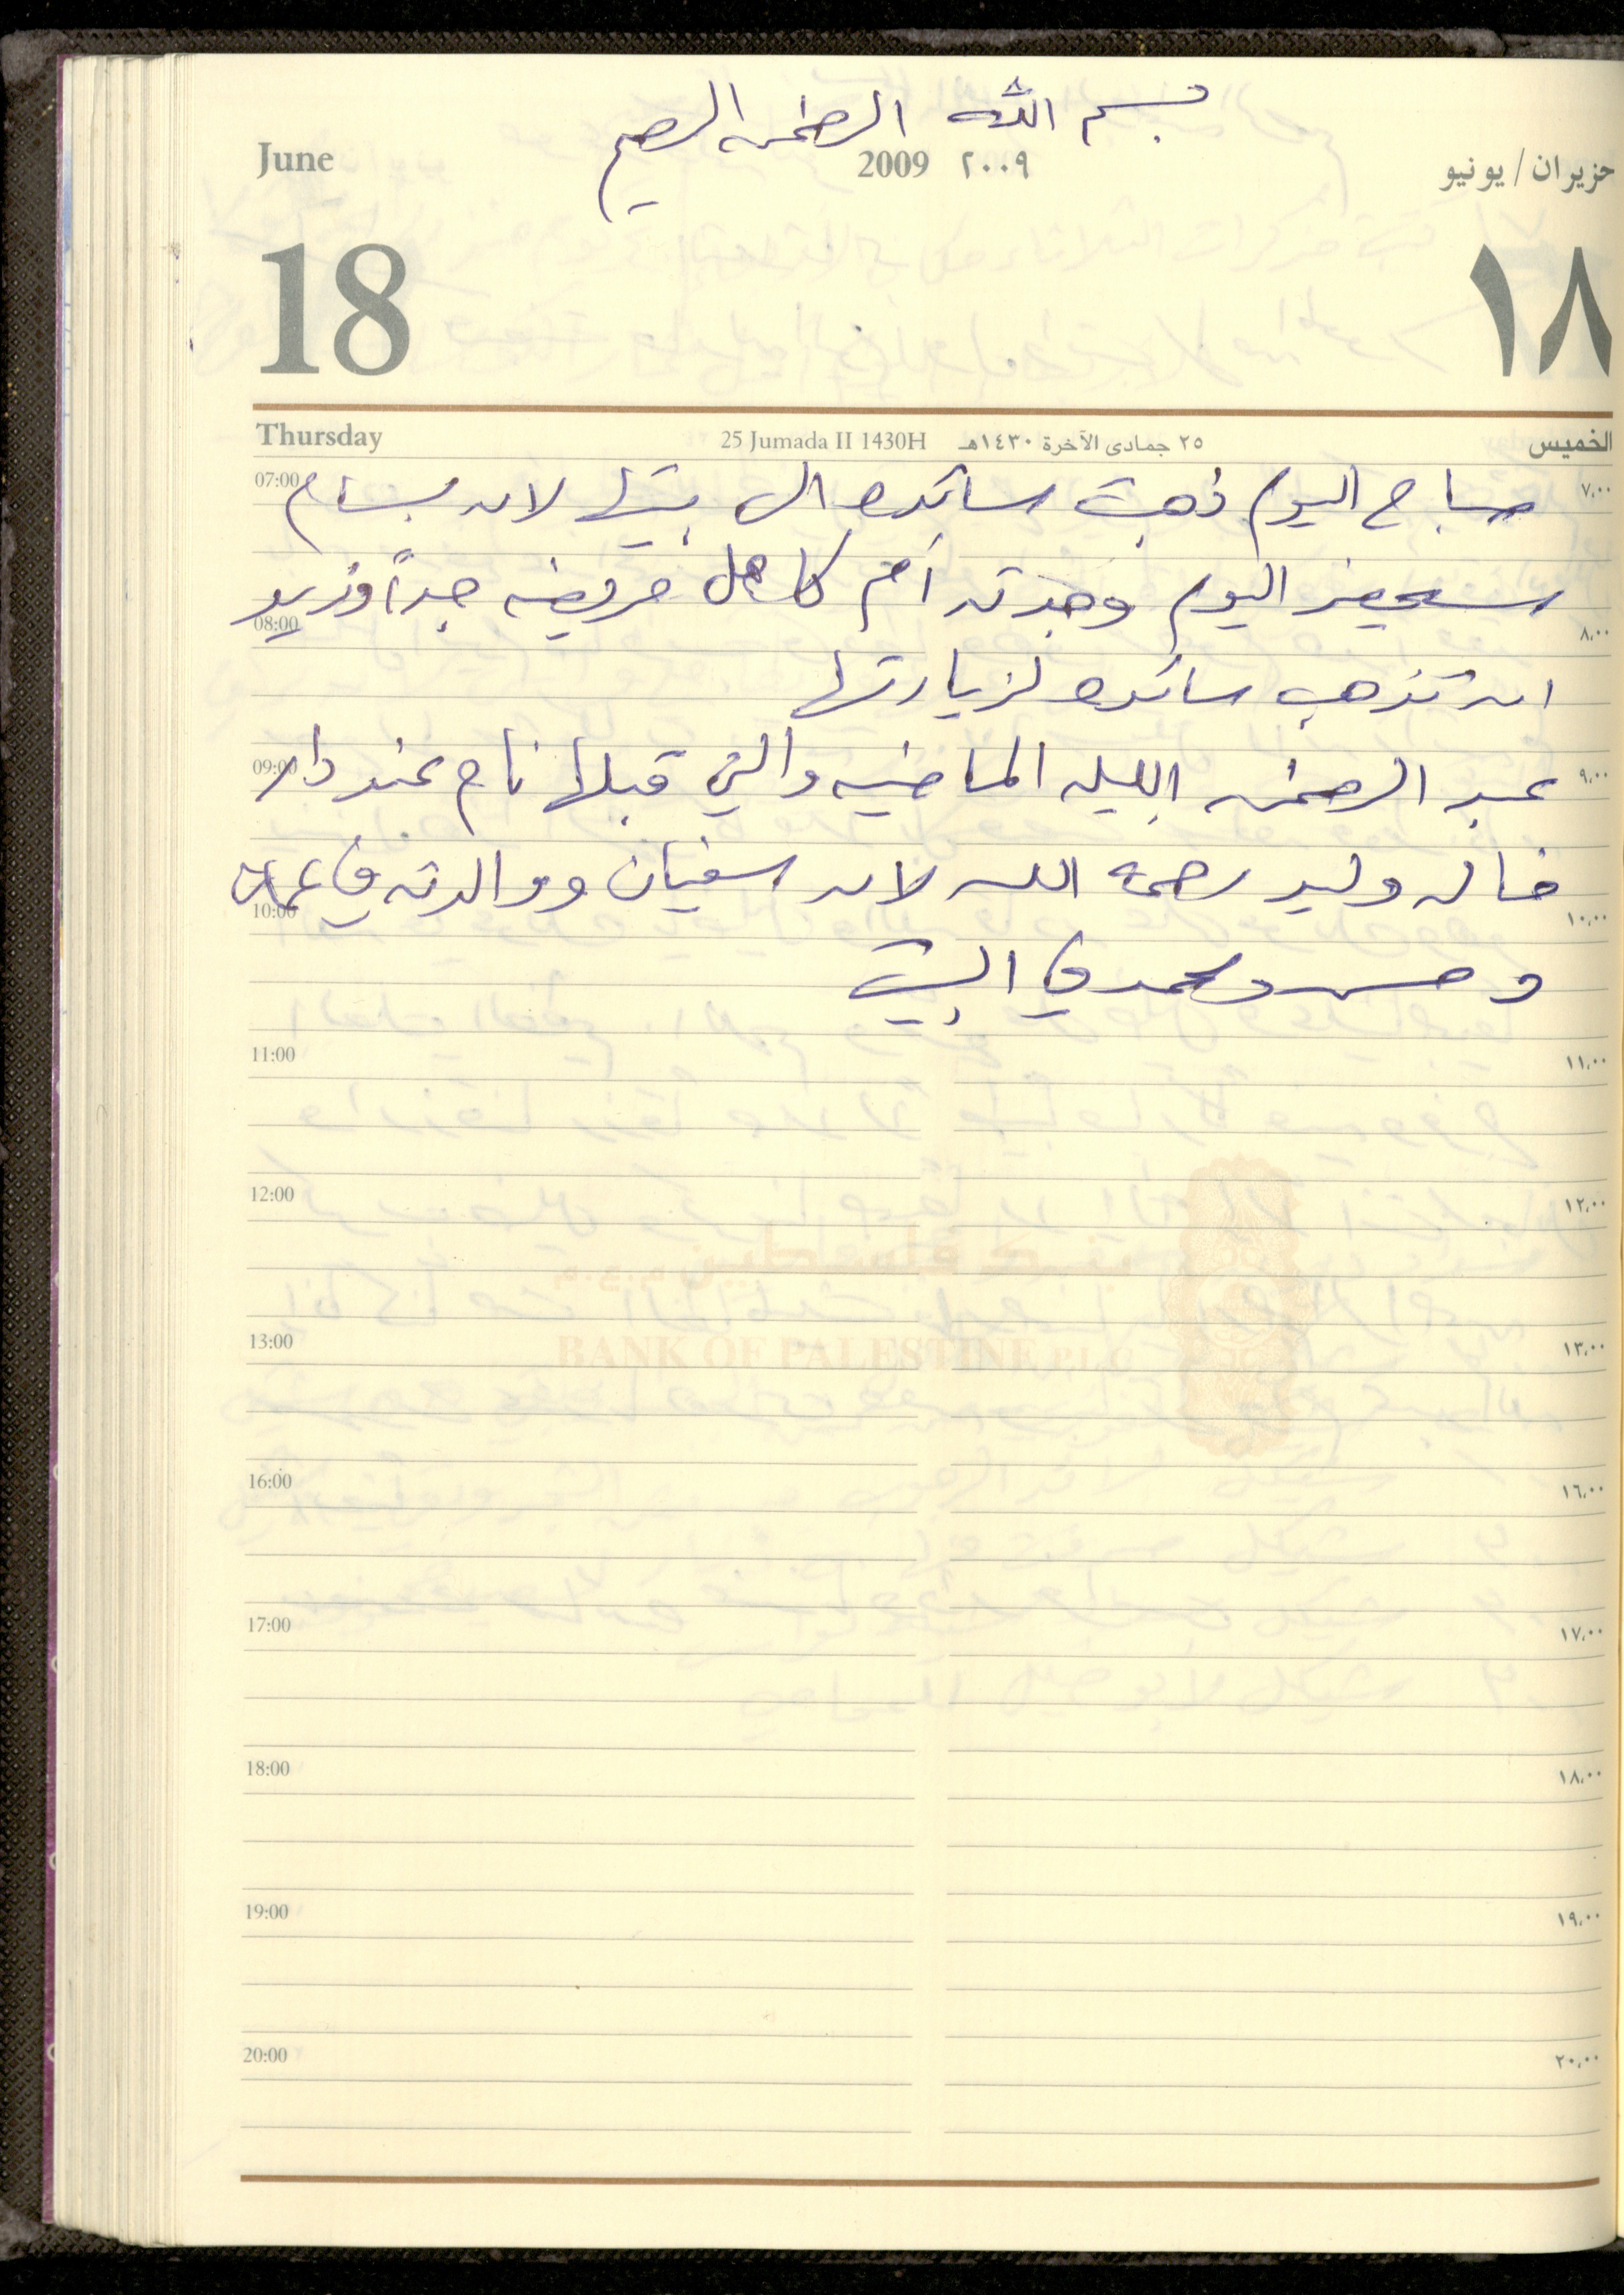 بسم الله الرحمن الرحيم
June 2009 ٢٠٠٩ حزيران / يونيو
18 ١٨
Thursday 25 Jumada II 1430H ٢٥ جمادى الآخرة ١٤٣٠هـ الخميس
07:00 صباح اليوم ذهبت سائده الى بيتها لان بسام ٧،٠٠
سيحضر اليوم وجدته أم كامل مريضه جداً ونريد
08:00 ٨،٠٠
ان تذهب سائده لزيارتها
09:00 عبد الرحمن الليله الماضيه والتي قبلها نام عند دار ٩،٠٠
خاله وليد رحمه الله لان سفيان ووالدته في عمان
10:00 ١٠،٠٠
و محمد في البيت
11:00 ١١،٠٠
12:00 ١٢،٠٠
بنك فلسطين م.ع.م
13:00 BANK OF PALESTINE P.L.C ١٣،٠٠
16:00 ١٦،٠٠
17:00 ١٧،٠٠
18:00 ١٨،٠٠
19:00 ١٩،٠٠
20:00 ٢٠،٠٠